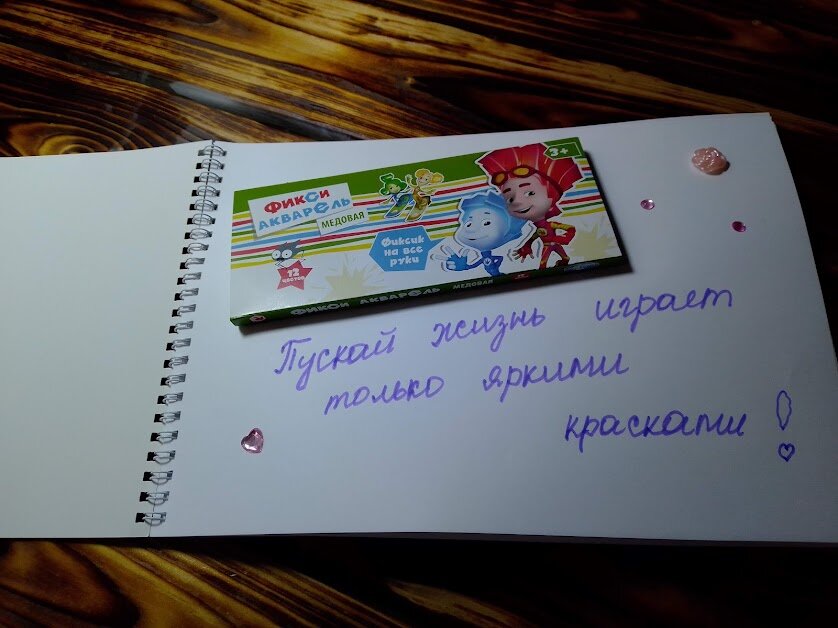 3+
ФИКСИ
АКВАРЕЛЬ
МЕДОВАЯ
Фиксик
на все
руки
12
цветов
ФИКСИ АКВАРЕЛЬ МЕДОВАЯ
Пускай жизнь играет
только яркими
красками!